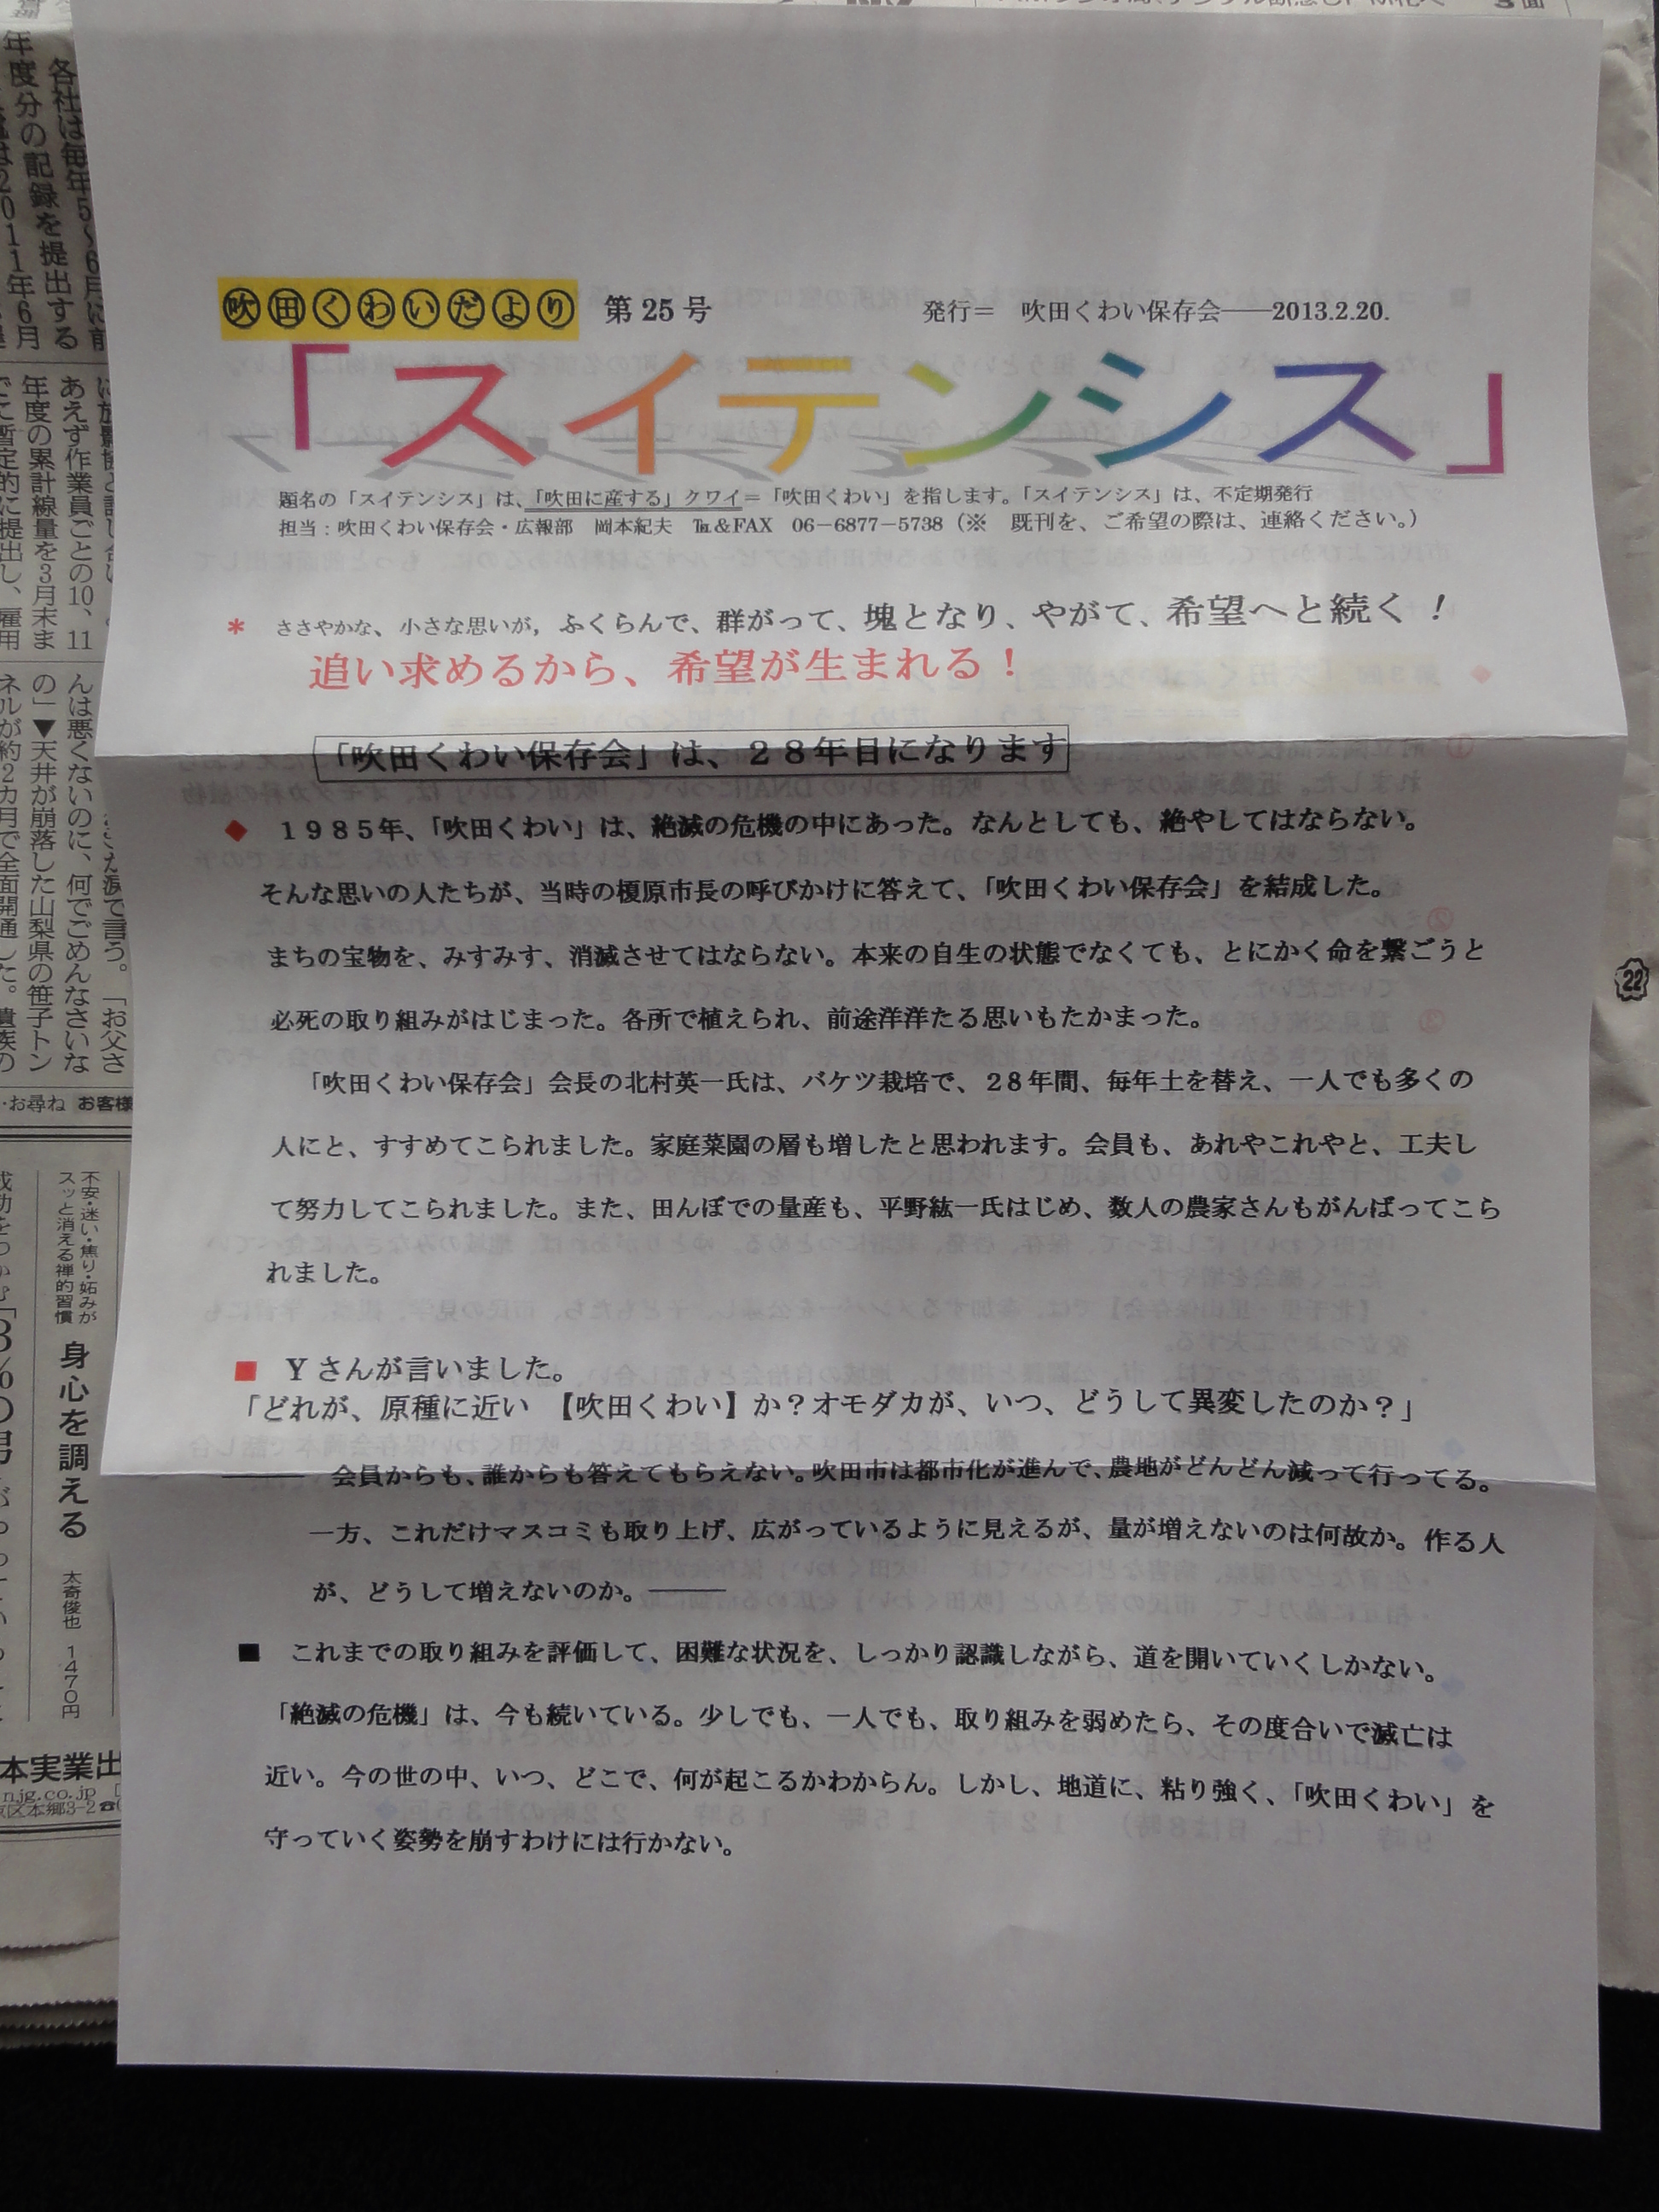 吹田くわいだより 第25号 発行＝ 吹田くわい保存会――2013.2.20.
「スイテンシス」
題名の「スイテンシス」は、「吹田に産する」クワイ＝「吹田くわい」を指します。「スイテンシス」は、不定期発行
担当：吹田くわい保存会・広報部 岡本紀夫 ℡＆FAX 06－6877－5738（※ 既刊を、ご希望の際は、連絡ください。）
* ささやかな、小さな思いが，ふくらんで、群がって、塊となり、やがて、希望へと続く！
追い求めるから、希望が生まれる！
「吹田くわい保存会」は、２８年目になります
◆ １９８５年、「吹田くわい」は、絶滅の危機の中にあった。なんとしても、絶やしてはならない。
そんな思いの人たちが、当時の榎原市長の呼びかけに答えて、「吹田くわい保存会」を結成した。
まちの宝物を、みすみす、消滅させてはならない。本来の自生の状態でなくても、とにかく命を繋ごうと
必死の取り組みがはじまった。各所で植えられ、前途洋洋たる思いもたかまった。
「吹田くわい保存会」会長の北村英一氏は、バケツ栽培で、２８年間、毎年土を替え、一人でも多くの
人にと、すすめてこられました。家庭菜園の層も増したと思われます。会員も、あれやこれやと、工夫し
て努力してこられました。また、田んぼでの量産も、平野紘一氏はじめ、数人の農家さんもがんばってこら
れました。
■ Ｙさんが言いました。
「どれが、原種に近い 【吹田くわい】か？オモダカが、いつ、どうして異変したのか？」
――― 会員からも、誰からも答えてもらえない。吹田市は都市化が進んで、農地がどんどん減って行ってる。
一方、これだけマスコミも取り上げ、広がっているように見えるが、量が増えないのは何故か。作る人
が、どうして増えないのか。―――
■ これまでの取り組みを評価して、困難な状況を、しっかり認識しながら、道を開いていくしかない。
「絶滅の危機」は、今も続いている。少しでも、一人でも、取り組みを弱めたら、その度合いで滅亡は
近い。今の世の中、いつ、どこで、何が起こるかわからん。しかし、地道に、粘り強く、「吹田くわい」を
守っていく姿勢を崩すわけには行かない。
各社は毎年5〜6月に前
年度分の記録を提出する
2011年6月
あえず作業員ごとの10、11
年度の累計線量を3月末ま
でに暫定的に提出し、雇用
た涙で言う。「お父さ
んは悪くないのに、何でごめんなさいな
の」▼天井が崩落した山梨県の笹子トン
ネルが約2カ月で全面開通した。
お尋ね お客様
不安・迷い・焦り・妬みが
スッと消える禅的習慣
身心を調える
太奇俊也 1470円
本実業出
njg.co.jp
区本郷3-2
22